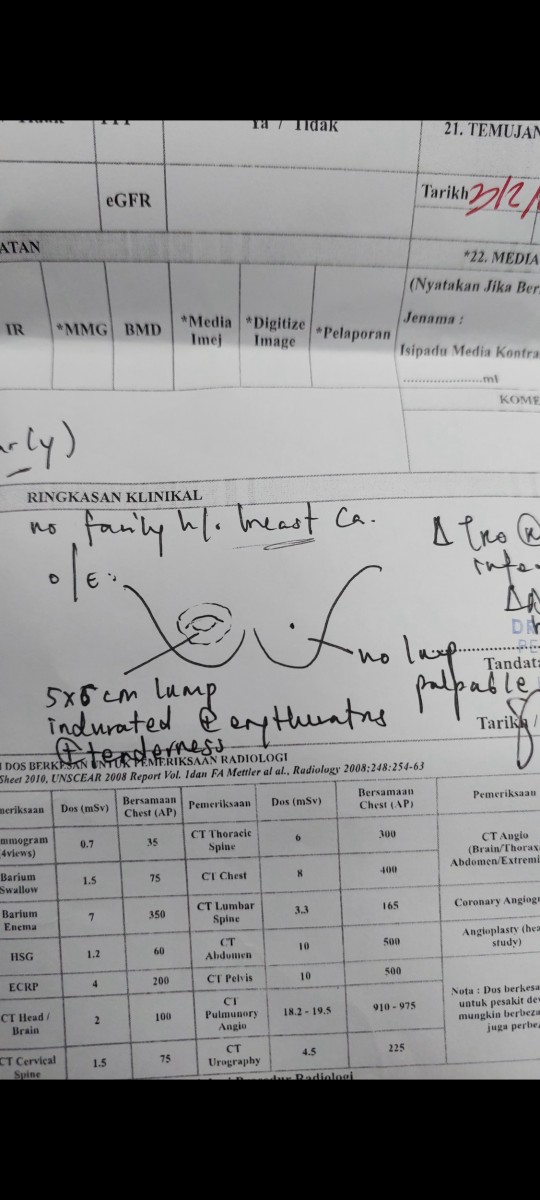 Ya / Tidak
21. TEMUJAN
eGFR
Tarikh
ATAN
*22. MEDIA
(Nyatakan Jika Ber
IR
*MMG
BMD
*Media Imej
*Digitize Image
*Pelaporan
Jenama :
Isipadu Media Kontra
....................ml
KOME
RINGKASAN KLINIKAL
no family h/o breast Ca.
O/E:
no lump
palpable
5x5 cm lump
indurated
tenderness
Tandata
Tarikh /
DOS BERKESAN UNTUK PEMERIKSAAN RADIOLOGI
Sheet 2010, UNSCEAR 2008 Report Vol. Idan FA Mettler al al., Radiology 2008;248:254-63
meriksaan
Dos (mSv)
Bersamaan Chest (AP)
Pemeriksaan
Dos (mSv)
Bersamaan Chest (AP)
Pemeriksaan
mmogram (4views)
0.7
35
CT Thoracic Spine
6
300
CT Angio (Brain/Thorax Abdomen/Extremi
Barium Swallow
1.5
75
CT Chest
8
400
Barium Enema
7
350
CT Lumbar Spine
3.3
165
Coronary Angiog
HSG
1.2
60
CT Abdomen
10
500
Angioplasty (hea study)
ECRP
4
200
CT Pelvis
10
500
CT Head / Brain
2
100
CT Pulmunory Angio
18.2 - 19.5
910 - 975
Nota : Dos berkesa
untuk pesakit de
mungkin berbeza
juga perbe
CT Cervical Spine
1.5
75
CT Urography
4.5
225